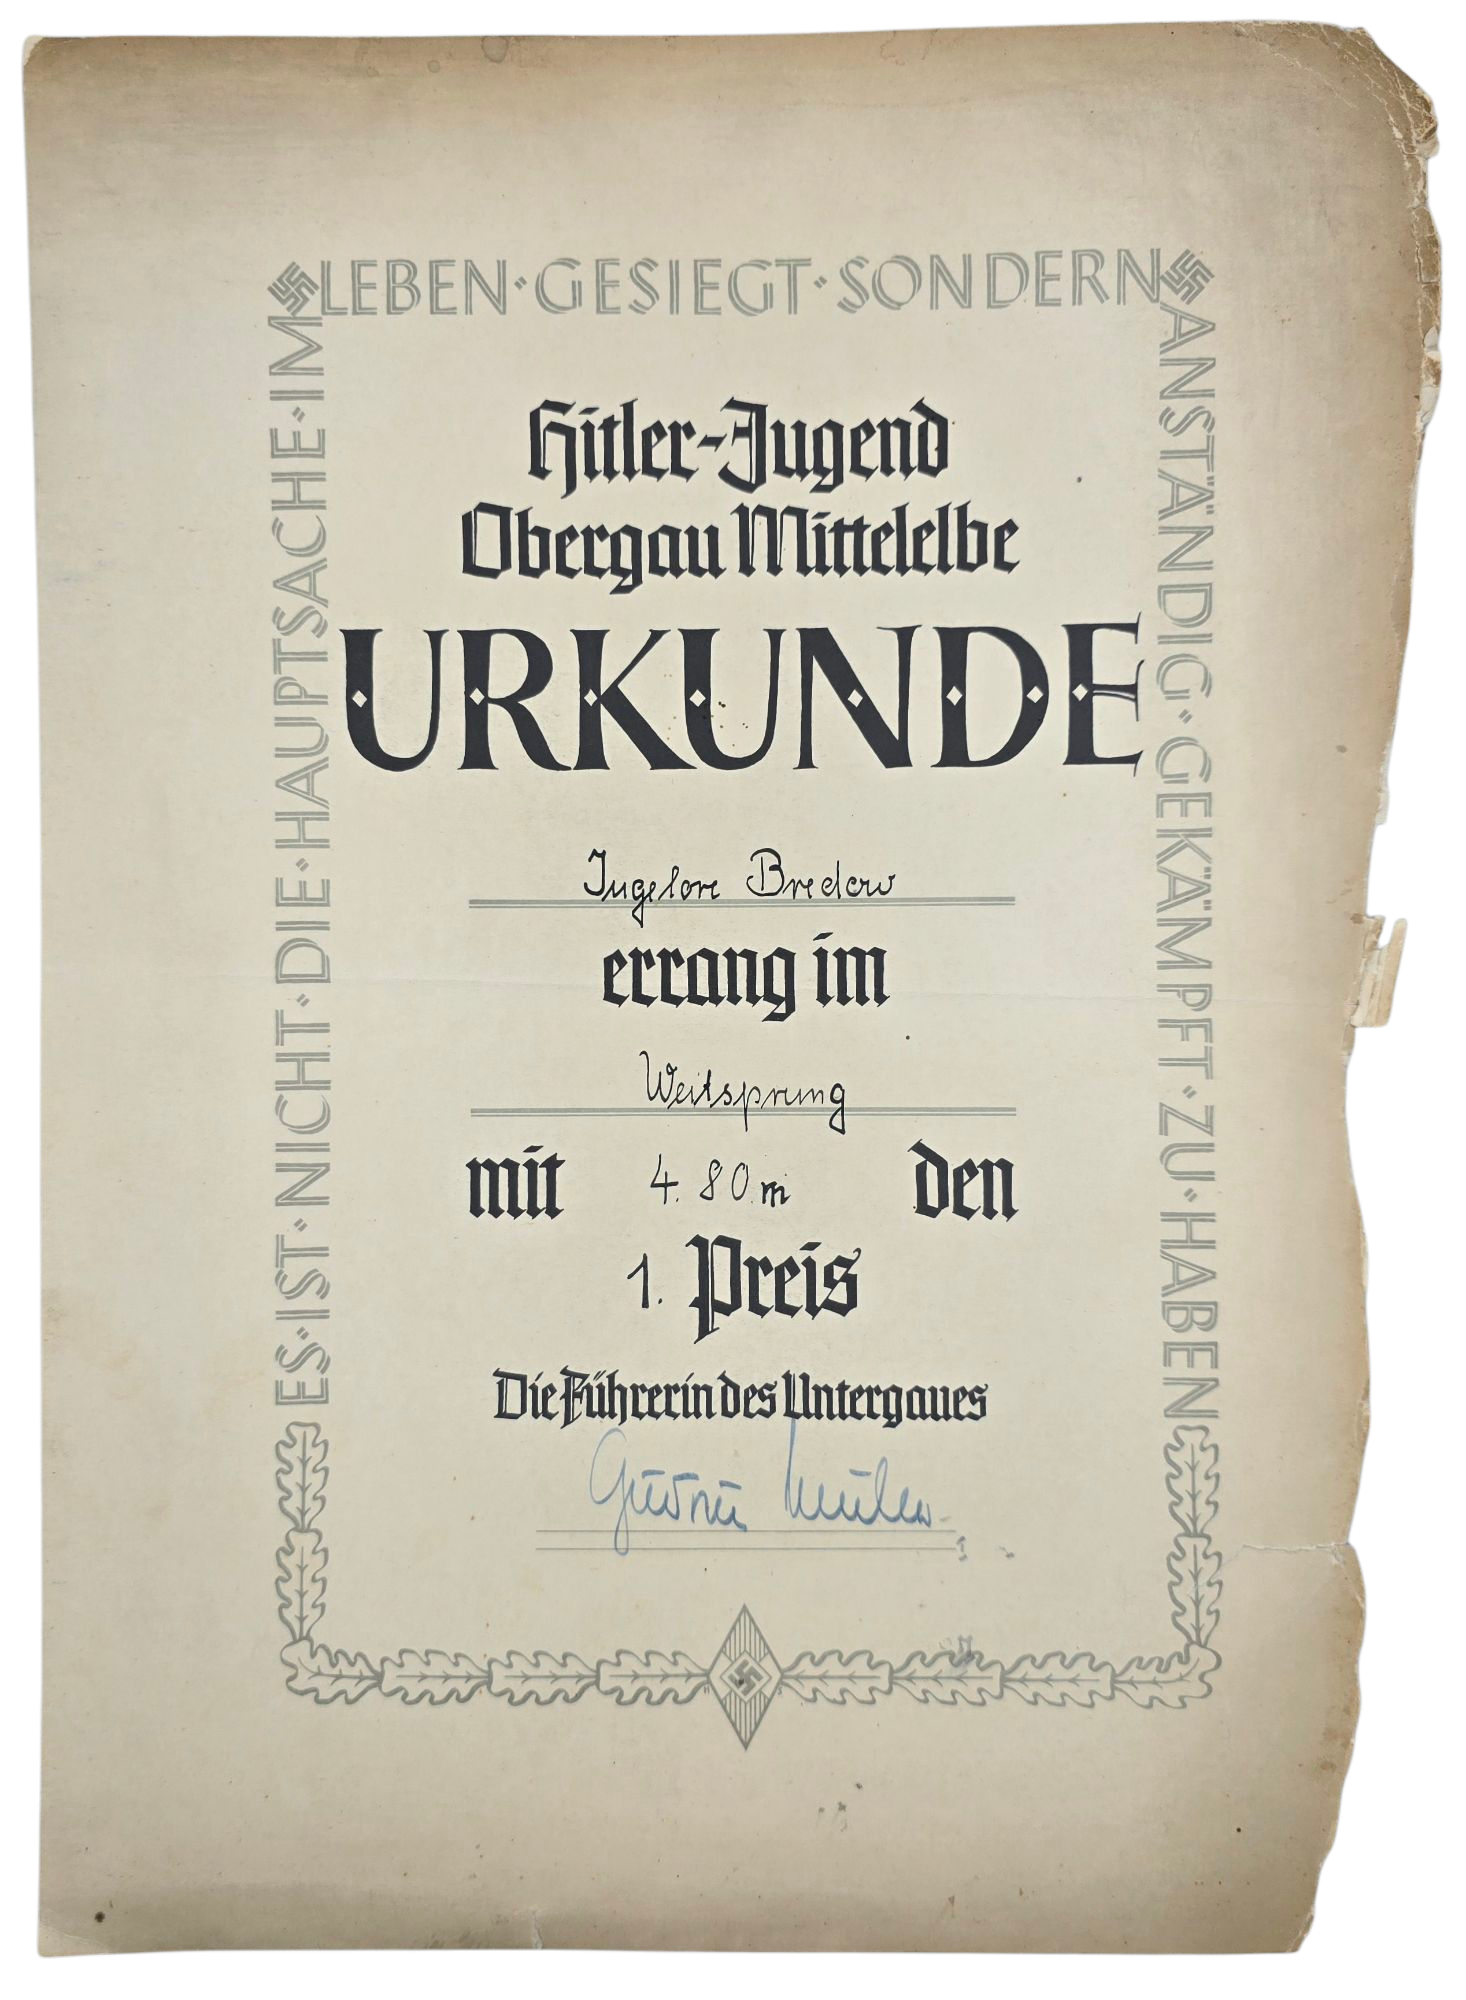 ES·IST·NICHT·DIE·HAUPTSACHE·IM
LEBEN·GESIEGT·SONDERN
ANSTÄNDIG·GEKÄMPFT·ZU·HABEN
Hitler-Jugend
Obergau Mittelelbe
URKUNDE
Ingelore Bredow
errang im
Weitsprung
mit 4.80 m den
1. Preis
Die Führerin des Untergaues